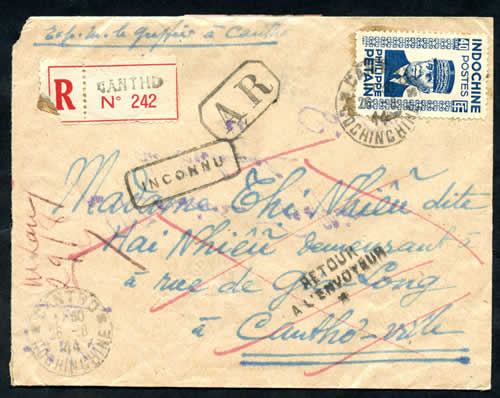 Exp. M. le greffier à Cantho
R
CANTHO
N° 242
AR
INCONNU
INDOCHINE
POSTES
PHILIPPE
PETAIN
COCHINCHINE
Madame Thi Nhiêu dite
Hai Nhiêu demeurant à
à rue de Gia Long
à Cantho-ville
RETOUR
A L'ENVOYEUR
CANTHO
COCHINCHINE